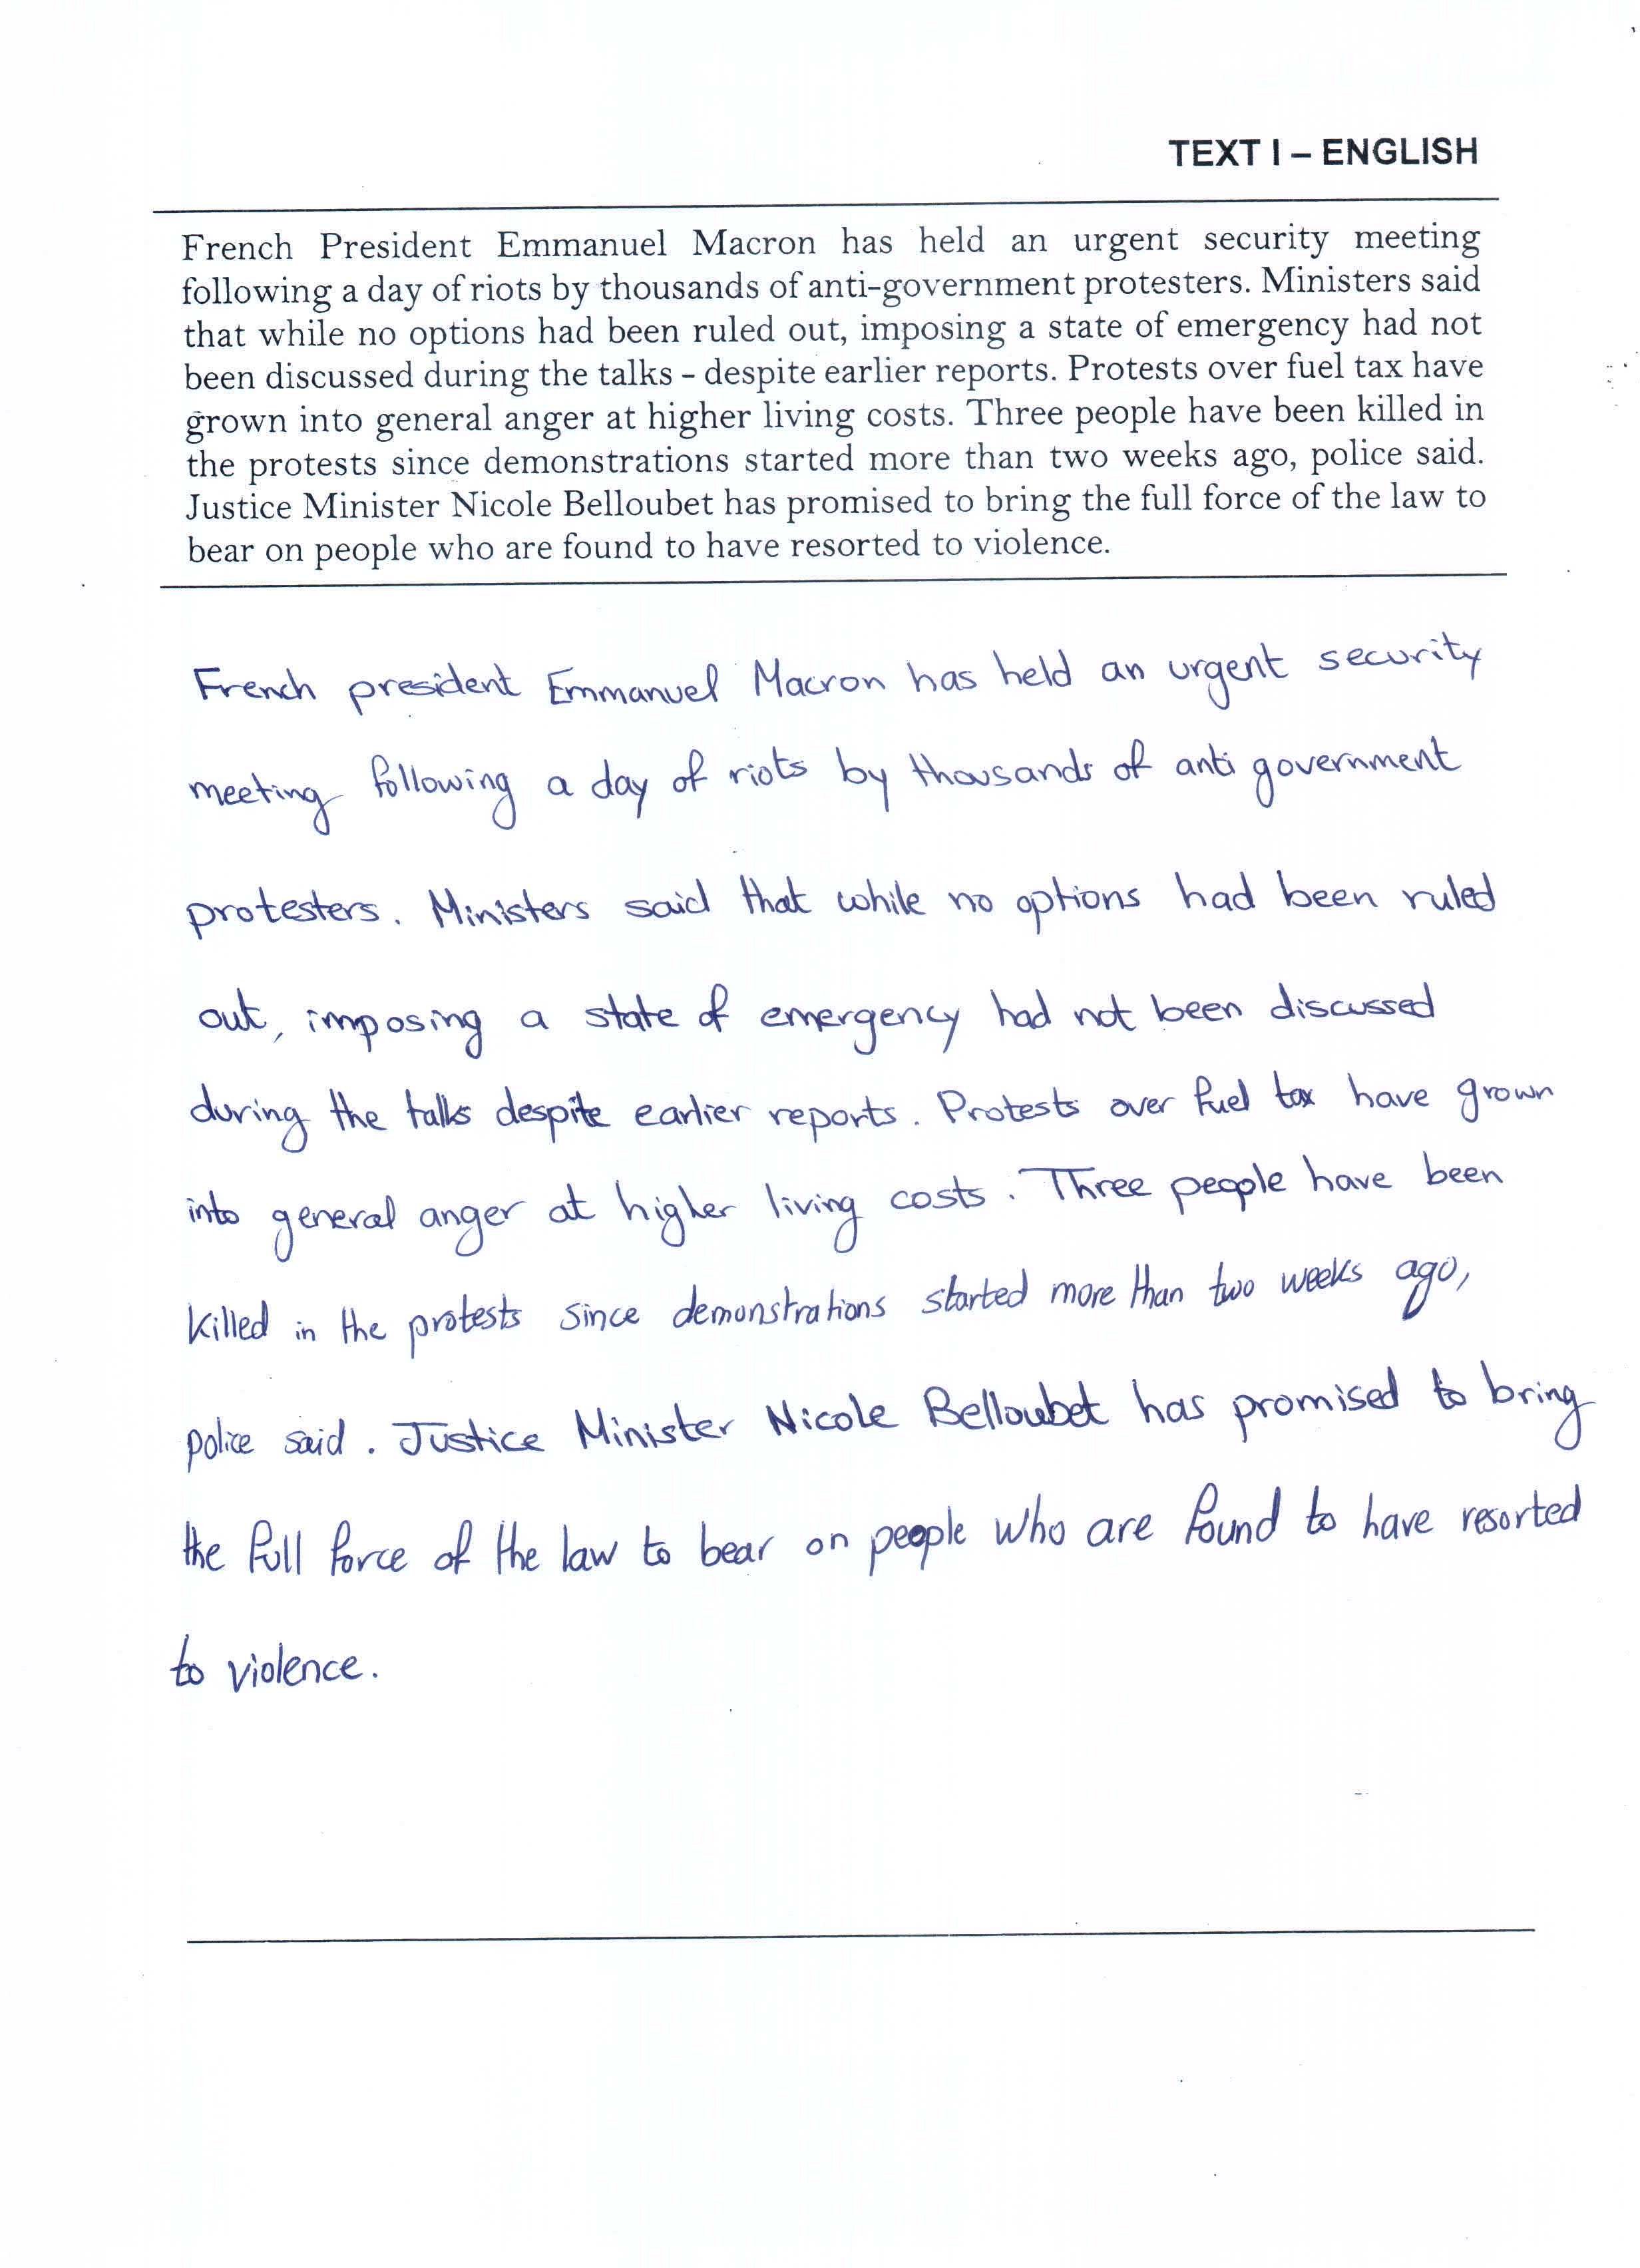 TEXT I – ENGLISH
French President Emmanuel Macron has held an urgent security meeting
following a day of riots by thousands of anti-government protesters. Ministers said
that while no options had been ruled out, imposing a state of emergency had not
been discussed during the talks – despite earlier reports. Protests over fuel tax have
grown into general anger at higher living costs. Three people have been killed in
the protests since demonstrations started more than two weeks ago, police said.
Justice Minister Nicole Belloubet has promised to bring the full force of the law to
bear on people who are found to have resorted to violence.
French president Emmanuel Macron has held an urgent security
meeting following a day of riots by thousands of anti government
protesters. Ministers said that while no options had been ruled
out, imposing a state of emergency had not been discussed
during the talks despite earlier reports. Protests over fuel tax have grown
into general anger at higher living costs. Three people have been
killed in the protests since demonstrations started more than two weeks ago,
police said. Justice Minister Nicole Belloubet has promised to bring
the full force of the law to bear on people who are found to have resorted
to violence.